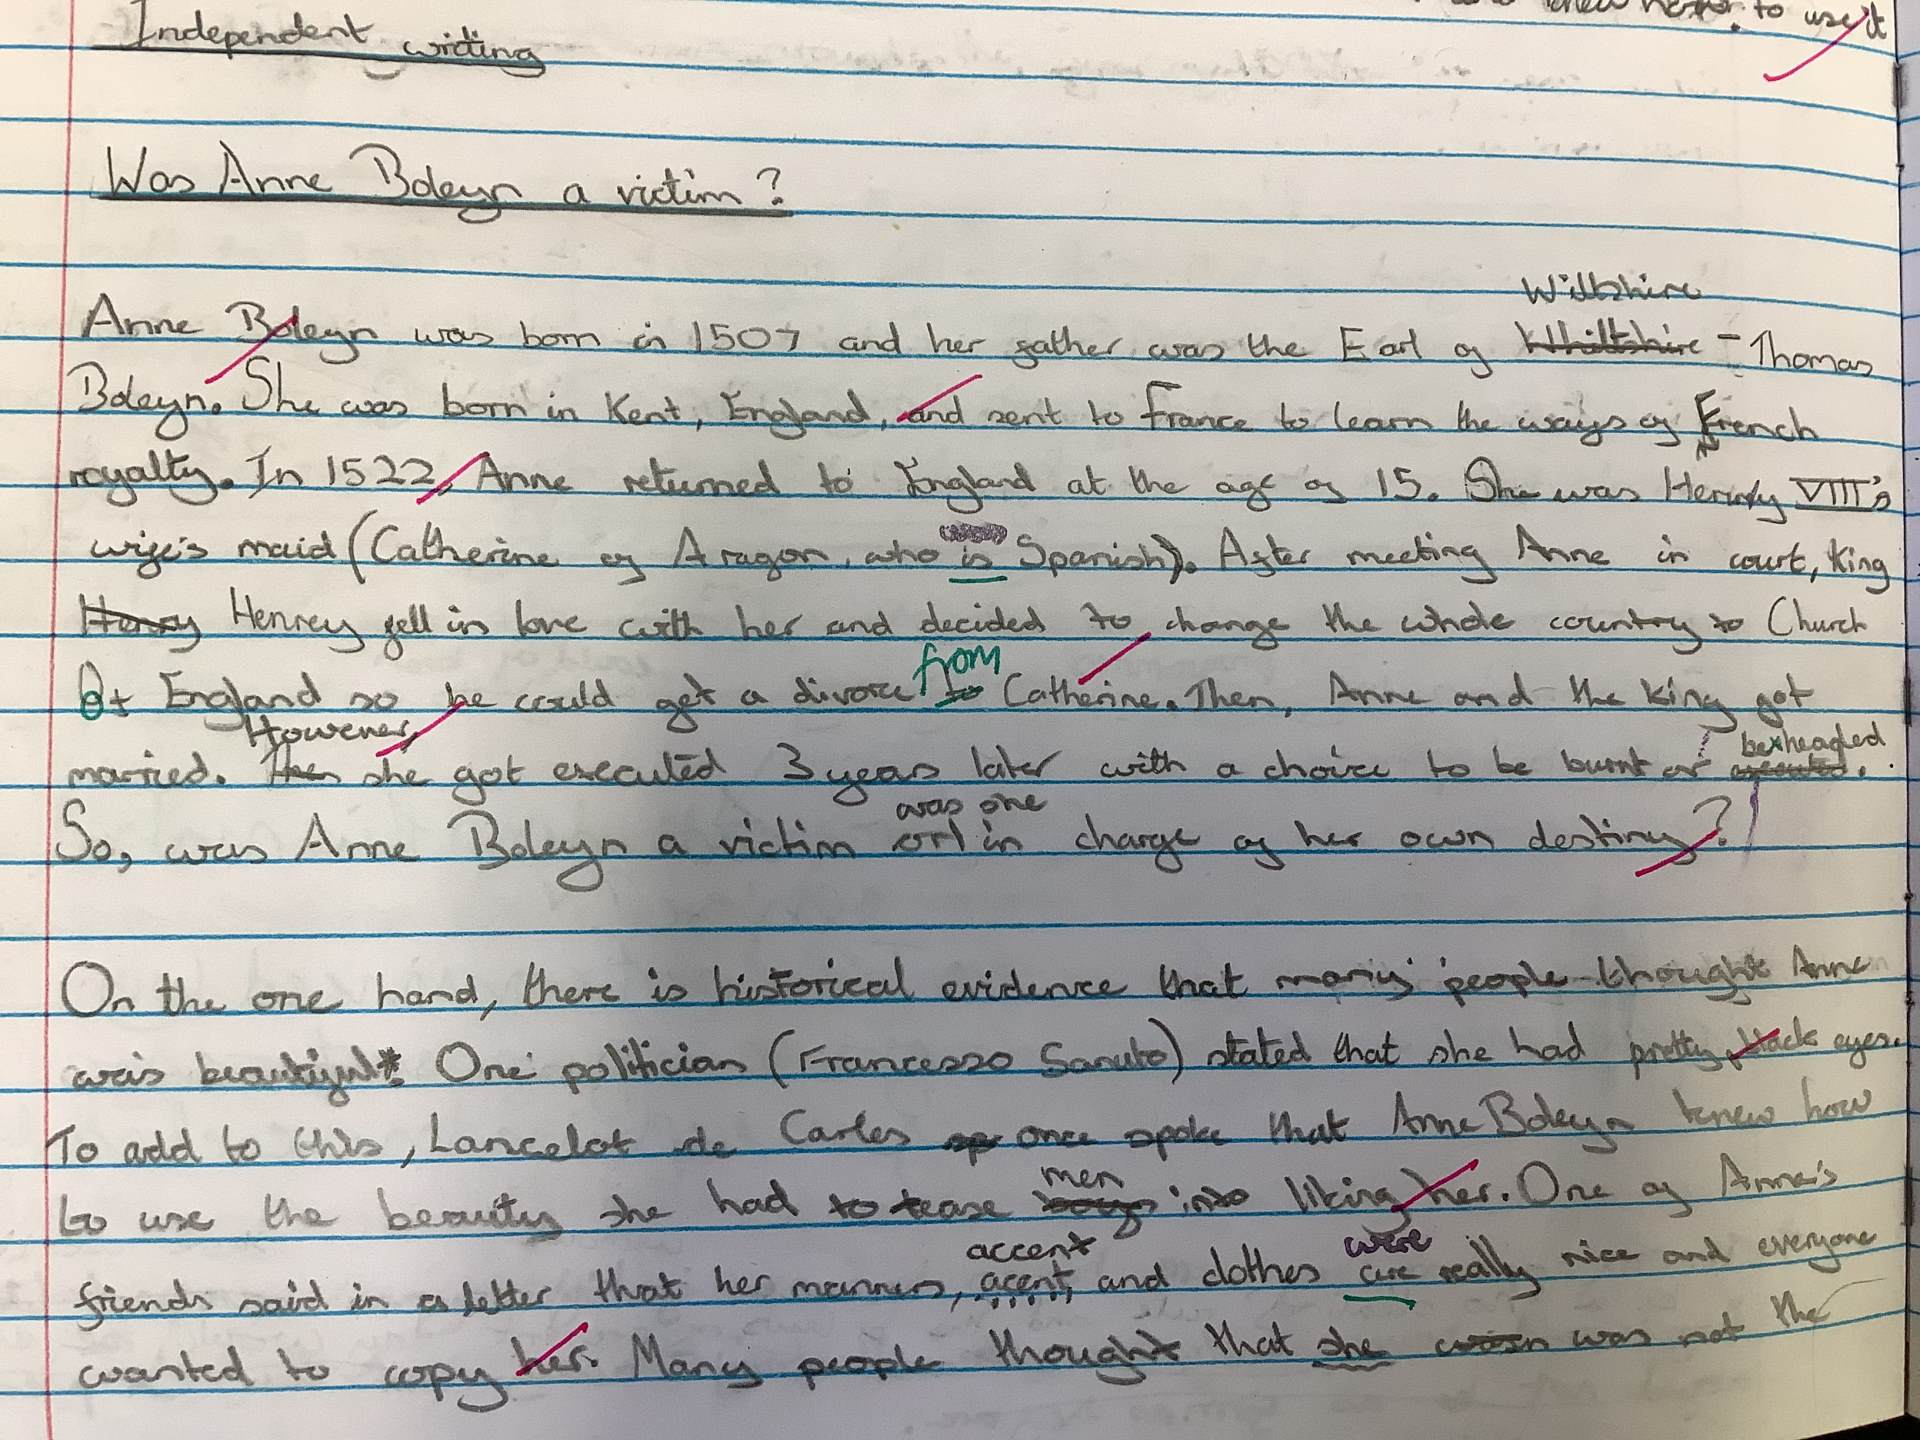 to use it
Independent writing
Was Anne Boleyn a victim?
Wiltshire
Anne Boleyn was born in 1507 and her father was the Earl of Whiltshire - Thomas
Boleyn. She was born in Kent, England, and sent to France to learn the ways of French
royalty. In 1522, Anne returned to England at the age of 15. She was Henry VIII's
wife's maid (Catherine of Aragon, who is Spanish). After meeting Anne in court, King
Henry Henrey fell in love with her and decided to change the whole country to Church
from
Of England so he could get a divorce to Catherine. Then, Anne and the King got
However, beheaded
married. Then she got executed 3 years later with a choice to be burnt or executed.
was one
So, was Anne Boleyn a victim or in charge of her own destiny?
On the one hand, there is historical evidence that many people thought Anne
was beautiful*. One politician (Francesso Sanuto) stated that she had pretty, black eyes.
To add to this, Lancelot de Carles sp once spoke that Anne Boleyn knew how
men
to use the beauty she had to tease boys into liking her. One of Anne's
accent were
friends said in a letter that her manners, acent, and clothes are really nice and everyone
wanted to copy her. Many people thought that she wasn was not the